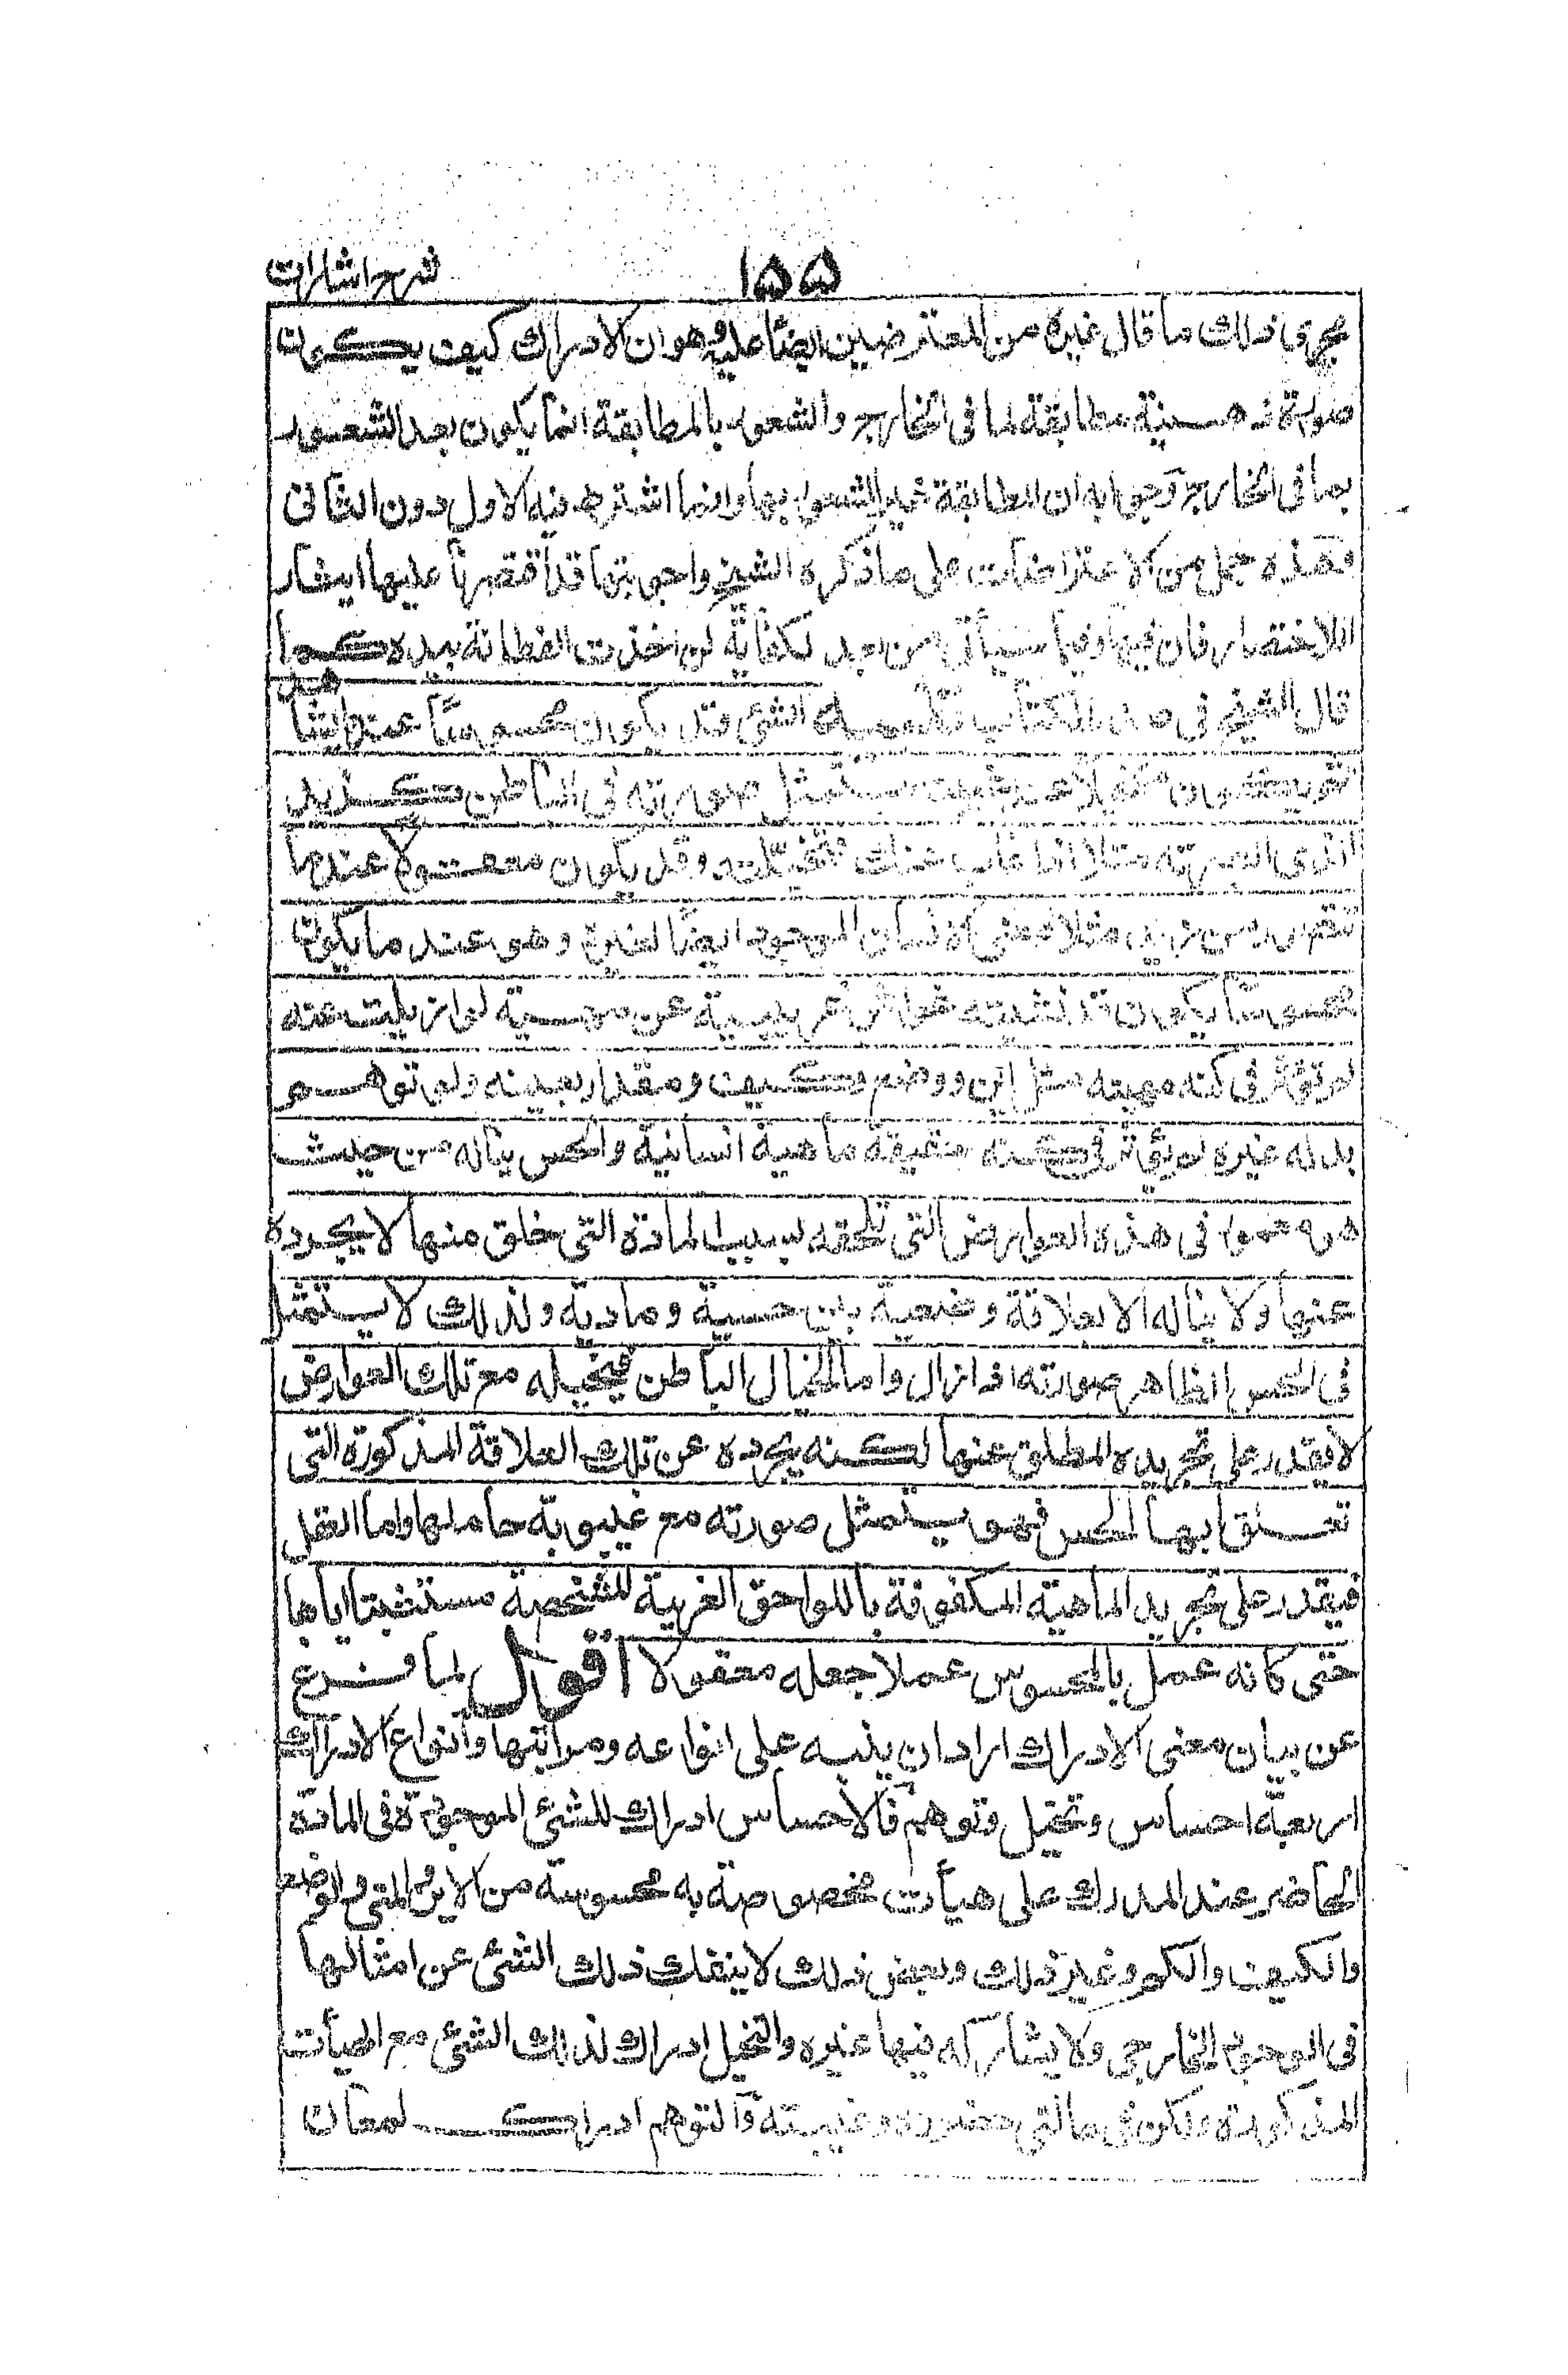 شرح اشارات
١٥٥
يجرى ذلك ما قال غيره من المعترضين ايضًا عليه وهو ان الادراك كيف يكون
صورة ذهنية مطابقة لما فى الخارج والشعور بالمطابقة انما يكون بعد الشعور
بما فى الخارج وجوابه ان المطابقة غير الشعور بها وانما اشترط فيه الاول دون الثانى
فهذه جمل من الاعتراضات على ما ذكره الشيخ واجوبتها قد اقتصرنا عليها ايثار
اللاختصار فان فيها وفيما سيأتى من بعد لكفاية لمن اخذت الفطانة بيده كما
قال الشيخ فى صدر الكتاب تنبيه الشئ قد يكون محسوسًا عندما يشاهد
ثم يكون متخيلا عند غيبته بتمثل صورته فى الباطن كزيد
الذى ابصرته مثلا اذا غاب عنك فتخيلته وقد يكون معقولا عندما
تتصور من زيد مثلا معنى الانسان الموجود ايضًا لغيره وهو عند ما يكون
محسوسًا يكون قد غشيته غواش غريبة عن مهية لو ازيلت عنه
لم تؤثر فى كنه مهيته مثل اين ووضع وكيف ومقدار بعينه ولو توهم
بدله غيره لم يؤثر فى كنه حقيقة ماهية انسانية والحس يناله من حيث
هو مغمور فى هذه العوارض التى تلحقه بسبب المادة التى خلق منها لا يجرده
عنها ولا يناله الا بعلاقة وضعية بين حسية ومادية ولذلك لا يستمثل
فى الحس الظاهر صورته اذا زال واما الخيال الباطن فيخيله مع تلك العوارض
لا يقدر على تجريده المطلق عنها لكنه يجرده عن تلك العلاقة المذكورة التى
تعلق بها الحس فهو يستمثل صورته مع غيبوبة حاملها واما العقل
فيقدر على تجريد الماهية المكنوفة باللواحق الغريبة المشخصة مستثبتا اياها
حتى كانه عمل بالمحسوس عملا جعله معقولا اقول لما فرغ
عن بيان معنى الادراك اراد ان ينبه على انواعه ومراتبها وانواع الادراك
اربعة احساس وتخيل وتوهم فالاحساس ادراك للشئ الموجود فى المادة
الحاضر عند المدرك على هيأت مخصوصة به محسوسة من الاين والمتى والوضع
والكيف والكم وغير ذلك وبعض ذلك لا ينفك ذلك الشئ عن امثالها
فى الوجود الخارجى ولا يشاركه فيها غيره والتخيل ادراك لذلك الشئ مع الهيأت
المذكورة ولكن فى حالتى حضوره وغيبته والتوهم ادراك لمعان